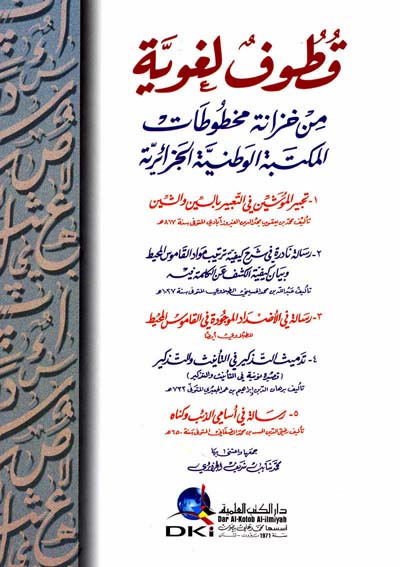 قُطُوفٌ لغويَّة
مِنْ خزانة مخطوطات
المكتبة الوطنية الجزائرية
١- تحبير الموشّين في التعبير بالسين والشين
تأليف محمد بن يعقوب مجد الدين الفيروزآبادي المتوفى سنة ٨١٧هـ
٢- رسالة نادرة في شرح كيفية ترتيب مواد القاموس المحيط
وبيان كيفية الكشف عن الكلمة فيه
٣- رسالة في الأضداد الموجودة في القاموس المحيط
٤- تدميث التذكير في التأنيث والتذكير
(قصيدة نونية في التأنيث والتذكير)
تأليف برهان الدين إبراهيم بن عمر الجعبري المتوفى ٧٣٢هـ
٥- رسالة في أسامي الذئب وكناه
تأليف رضي الدين الحسن بن محمد الصغاني المتوفى سنة ٦٥٠هـ
دار الكتب العلمية
Dar Al-Kotob Al-ilmiyah
DKi
أسسها محمد علي بيضون
سنة 1971 بيروت - لبنان